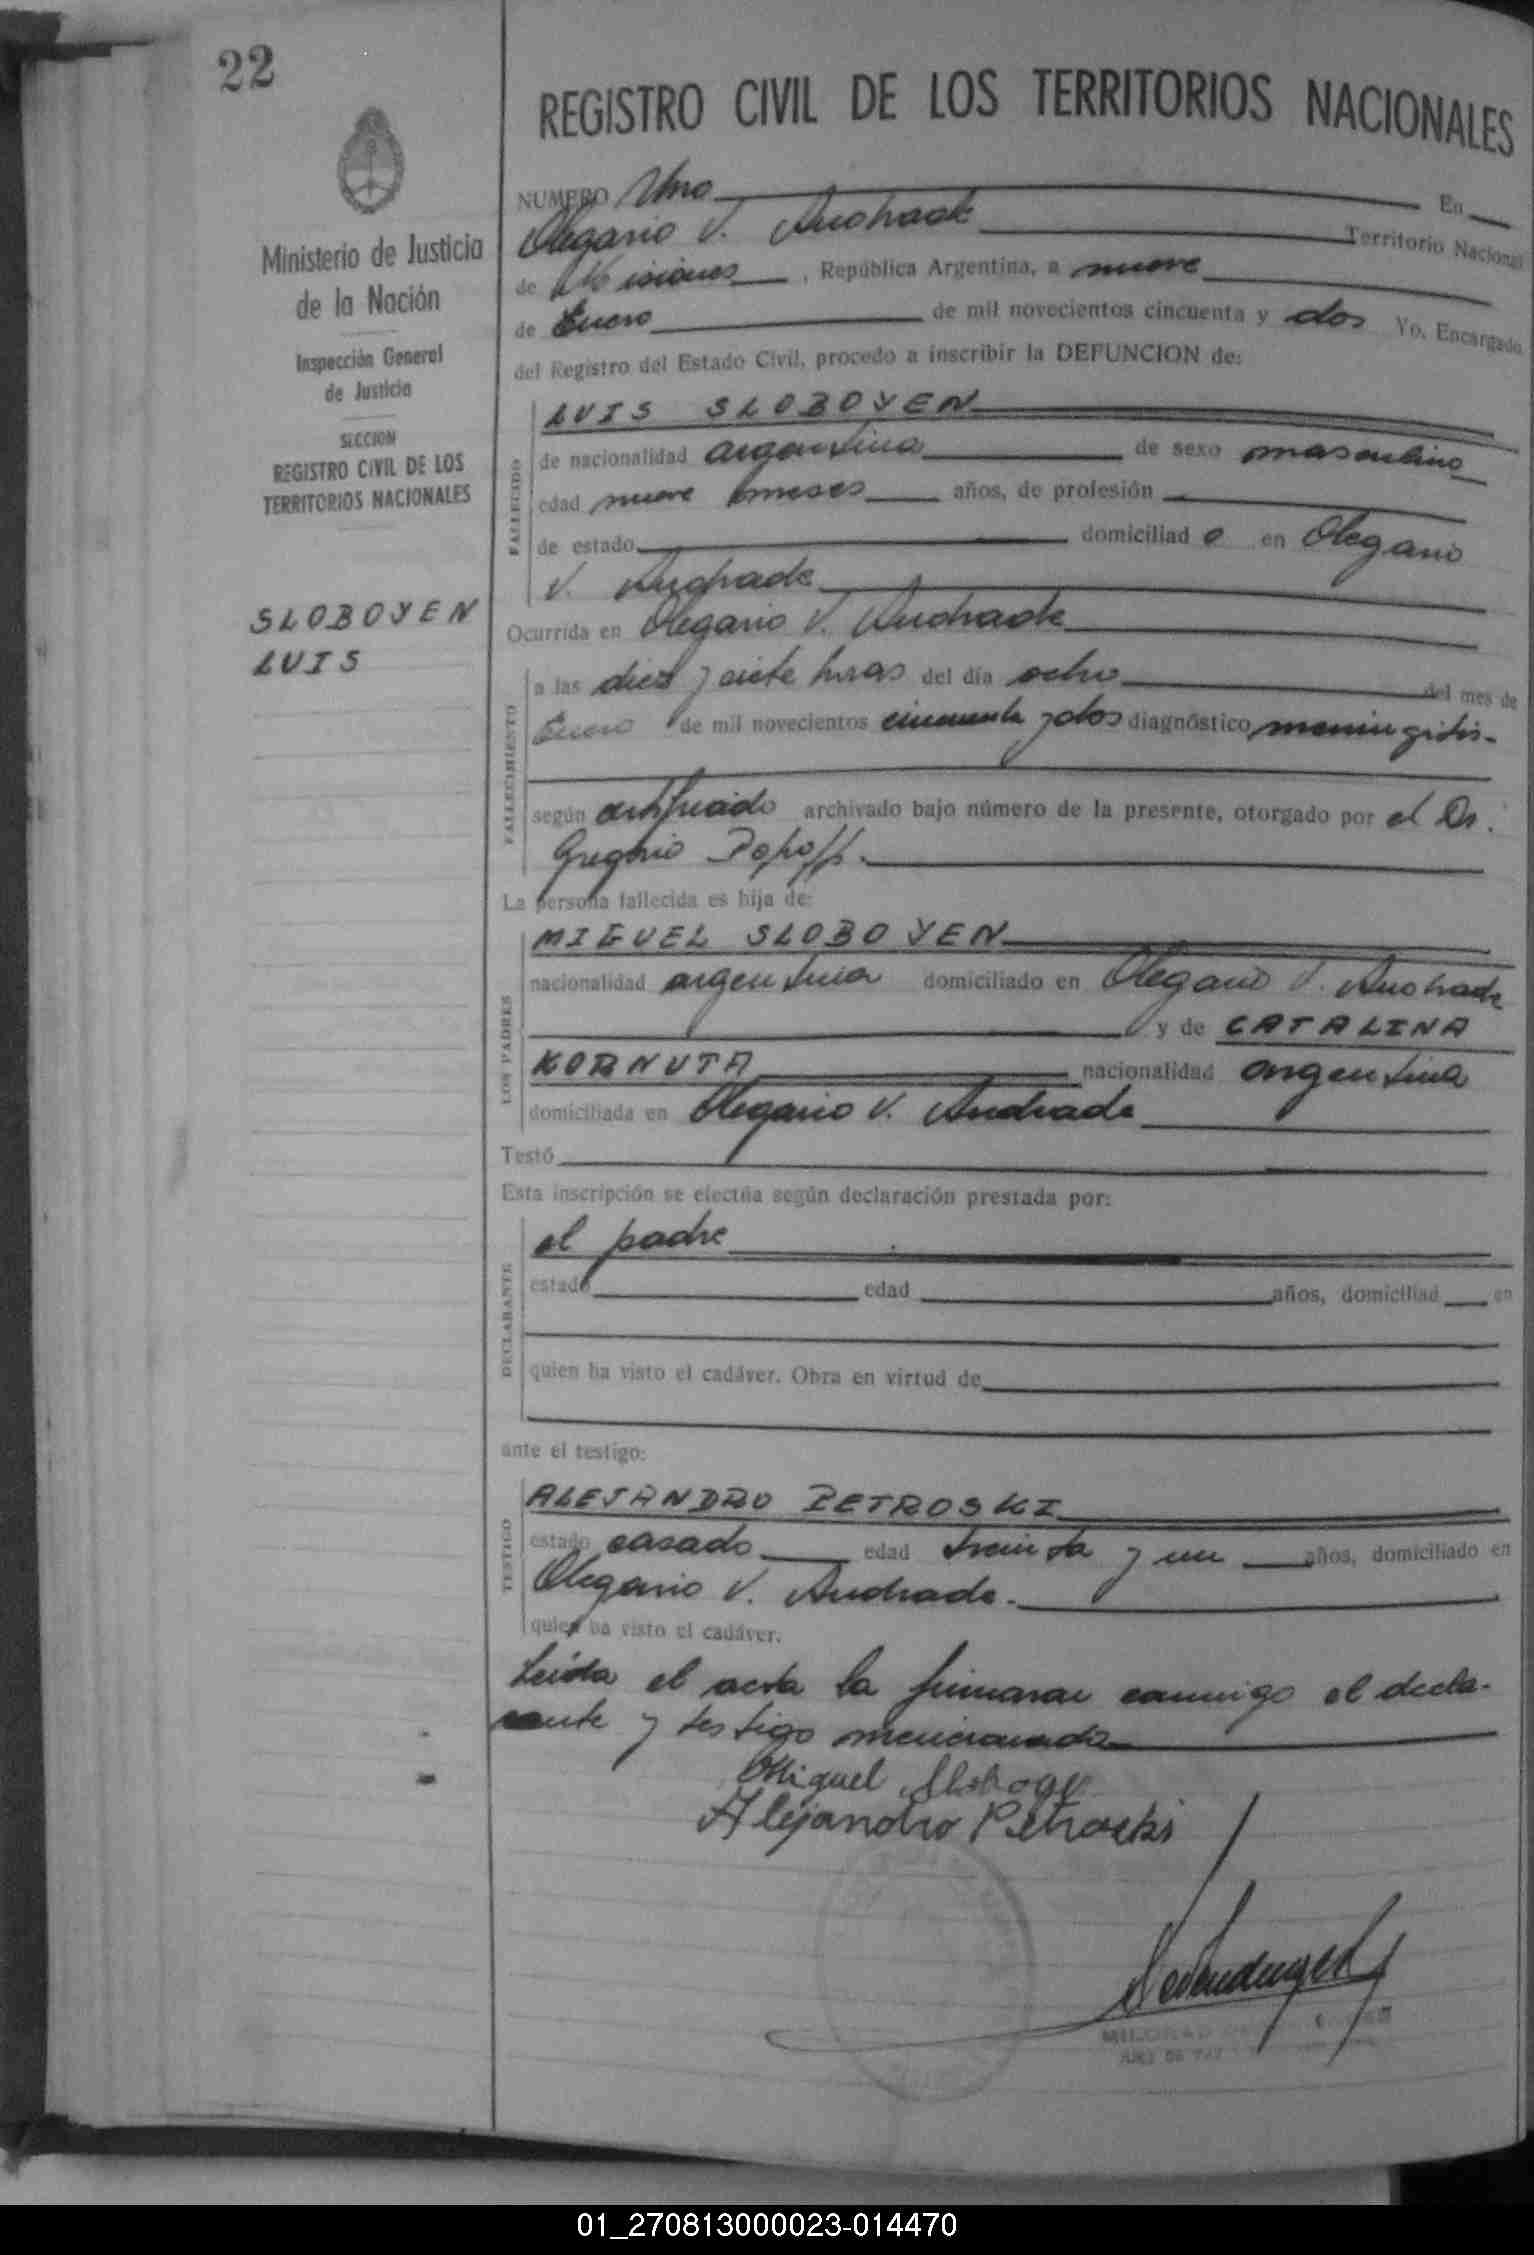 22
Ministerio de Justicia
de la Nación
Inspección General
de Justicia
SECCION
REGISTRO CIVIL DE LOS
TERRITORIOS NACIONALES
SLOBOYEN
LUIS
REGISTRO CIVIL DE LOS TERRITORIOS NACIONALES
NUMERO Uno En
Olegario V. Andrade Territorio Nacional
de Misiones, República Argentina, a nueve
de Enero de mil novecientos cincuenta y dos Yo, Encargado
del Registro del Estado Civil, procedo a inscribir la DEFUNCION de:
FALLECIDO
LUIS SLOBOYEN
de nacionalidad argentina de sexo masculino
edad nueve meses años, de profesión
de estado domiciliad o en Olegario
V. Andrade
Ocurrida en Olegario V. Andrade
FALLECIMIENTO
a las diez y siete horas del día ocho del mes de
Enero de mil novecientos cincuenta y dos diagnóstico meningitis.
según certificado archivado bajo número de la presente, otorgado por el Dr.
Gregorio Popoff.
La persona fallecida es hija de:
LOS PADRES
MIGUEL SLOBOYEN
nacionalidad argentina domiciliado en Olegario V. Andrade
y de CATALINA
KORNUTA nacionalidad argentina
domiciliada en Olegario V. Andrade
Testó
Esta inscripción se efectúa según declaración prestada por:
DECLARANTE
el padre
estado edad años, domiciliad en
quien ha visto el cadáver. Obra en virtud de
ante el testigo:
TESTIGO
ALEJANDRO PETROSKI
estado casado edad treinta y un años, domiciliado en
Olegario V. Andrade.
quien ha visto el cadáver.
Leída el acta la firmaran conmigo el decla-
rante y testigo mencionado
Miguel
Alejandro Petroski
MILORAD
JUEZ DE PAZ
01_270813000023-014470